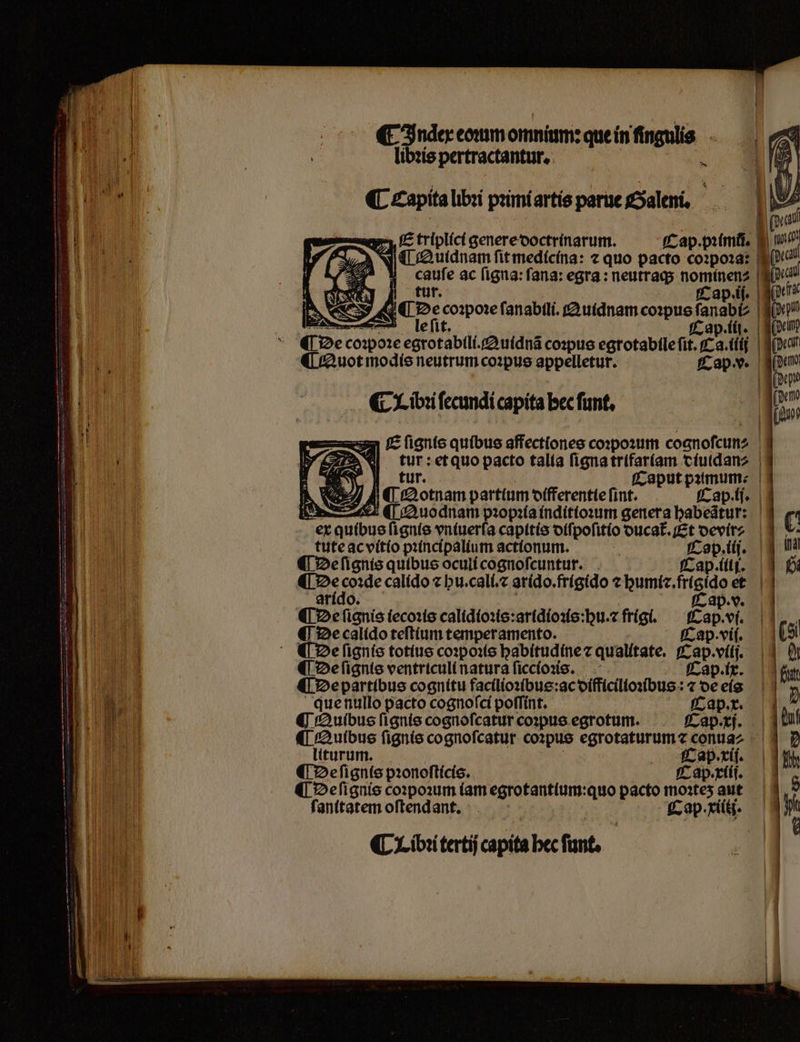 ¶ Index eorum omnium: que in singulis
libris pertractantur.
¶ Capita libri primi artis parue Galeni.
DE triplici genere doctrinarum. Cap.primū.
¶ Quidnam sit medicina: ⁊ quo pacto corpora:
cause ac signa: sana: egra: neutraqꝫ nominen⸗
tur. Cap.ij.
¶ De corpore sanabili. Quidnam corpus sanabi⸗
le sit. Cap.iij.
¶ De corpore egrotabili. Quidnā corpus egrotabile sit. Ca.iiij
¶ Quot modis neutrum corpus appelletur. Cap.v.
¶ Libri secundi capita hec sunt.
DE signis quibus affectiones corporum cognoscun⸗
tur: et quo pacto talia signa trifariam diuidan⸗
tur. Caput primum.
¶ Qotnam partium differentie sint. Cap.ij.
¶ Quodnam propria inditiorum genera habeātur:
ex quibus signis vniuersa capitis dispositio ducat̄. Et devir⸗
tute ac vitio principalium actionum. Cap.iij.
¶ De signis quibus oculi cognoscuntur. Cap.iiij.
¶ De corde calido ⁊ hu.cali.⁊ arido.frigido ⁊ humi⁊.frigido et
arido. Cap.v.
¶ De signis iecoris calidioris:aridioris:hu.⁊ frigi. Cap.vi.
¶ De calido testium temperamento. Cap.vij.
¶ De signis totius corporis habitudine ⁊ qualitate. Cap.viij.
¶ De signis ventriculi natura siccioris. Cap.ix.
¶ De partibus cognitu facilioribus:ac difficilioribus: ⁊ de eis
que nullo pacto cognosci possint. Cap.x.
¶ Quibus signis cognoscatur corpus egrotum. Cap.xj.
¶ Quibus signis cognoscatur corpus egrotaturum ⁊ conua⸗
liturum. Cap.xij.
¶ De signis pronosticis. Cap.xiij.
¶ De signis corporum iam egrotantium:quo pacto mortez aut
sanitatem ostendant. Cap.xiiij.
¶ Libri tertij capita hec sunt.